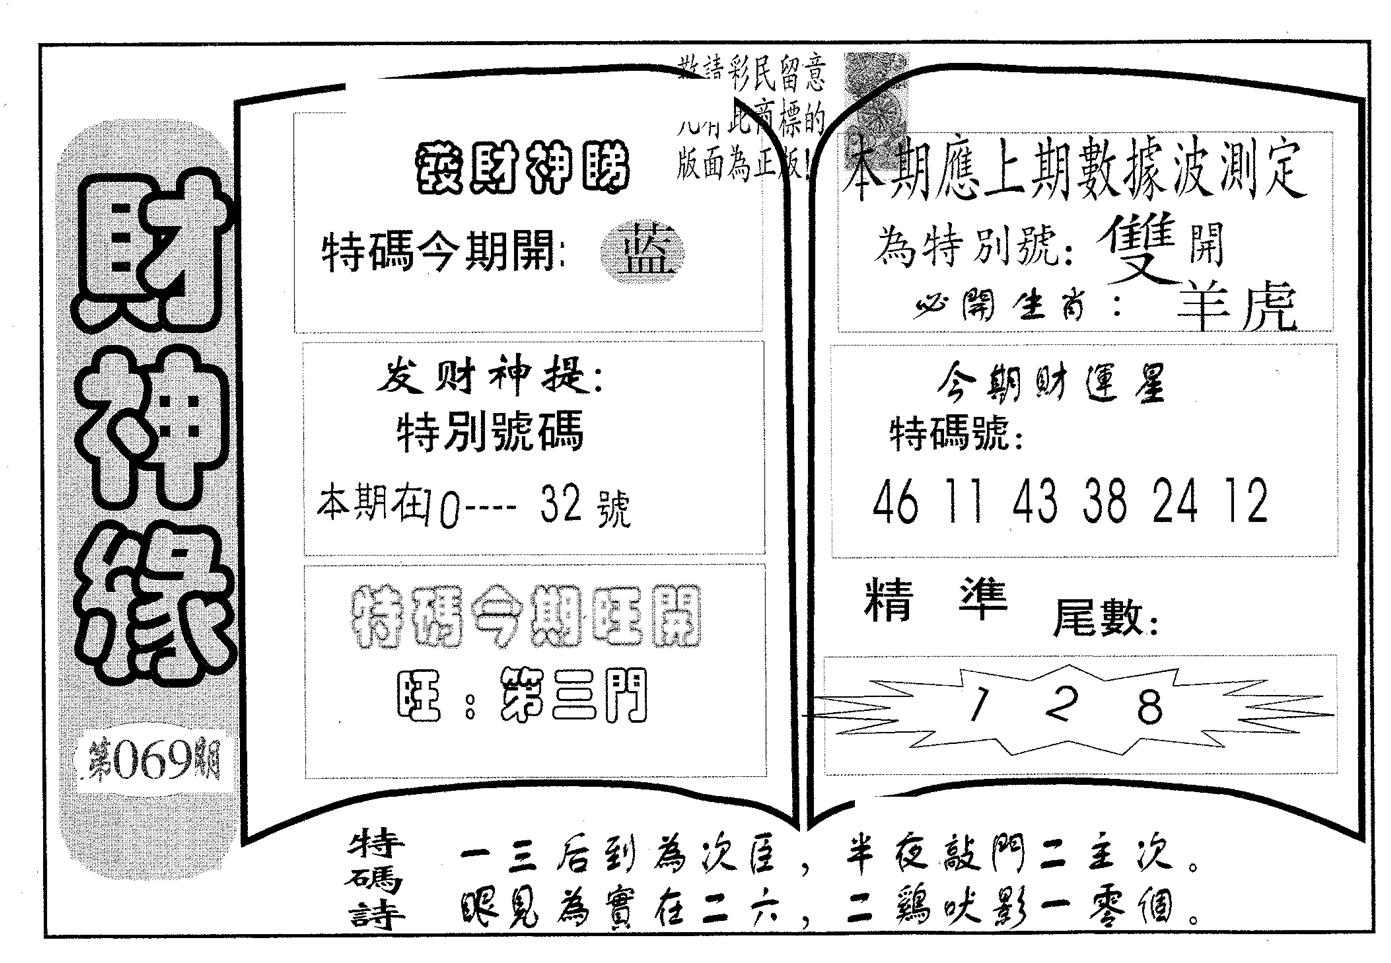 財神緣
第069期
敬請彩民留意
凡有此商標的
版面為正版!
發財神睇
特碼今期開: 蓝
发财神提:
特別號碼
本期在10---- 32 號
特碼今期旺開
旺:第三門
本期應上期數據波測定
為特別號: 雙 開
必開生肖: 羊虎
今期財運星
特碼號:
46 11 43 38 24 12
精 準 尾數:
1 2 8
特碼詩
一三后到為次臣,半夜敲門二主次。
眼見為實在二六,二鷄吠影一零個。